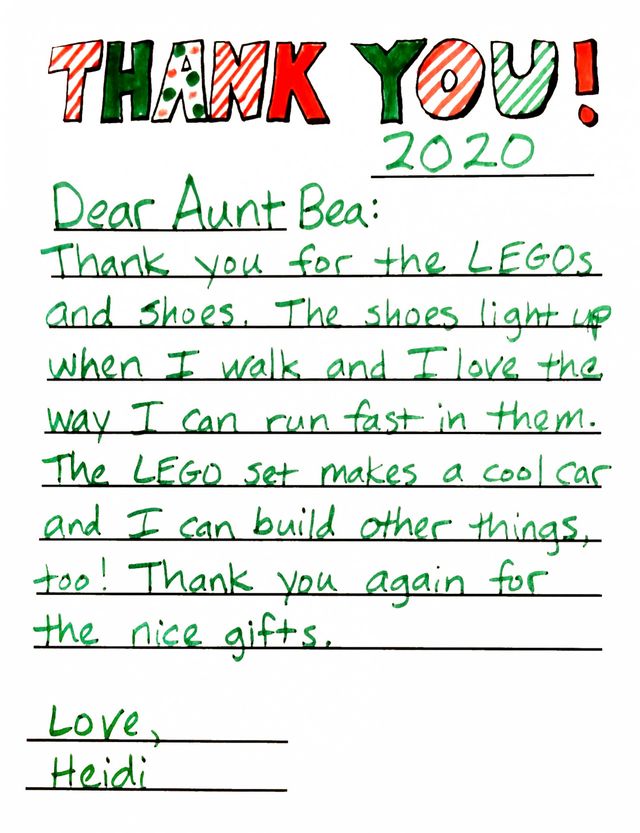 THANK YOU!
2020
Dear Aunt Bea:
Thank you for the LEGOs
and shoes. The shoes light up
when I walk and I love the
way I can run fast in them.
The LEGO set makes a cool car
and I can build other things,
too! Thank you again for
the nice gifts.
Love,
Heidi